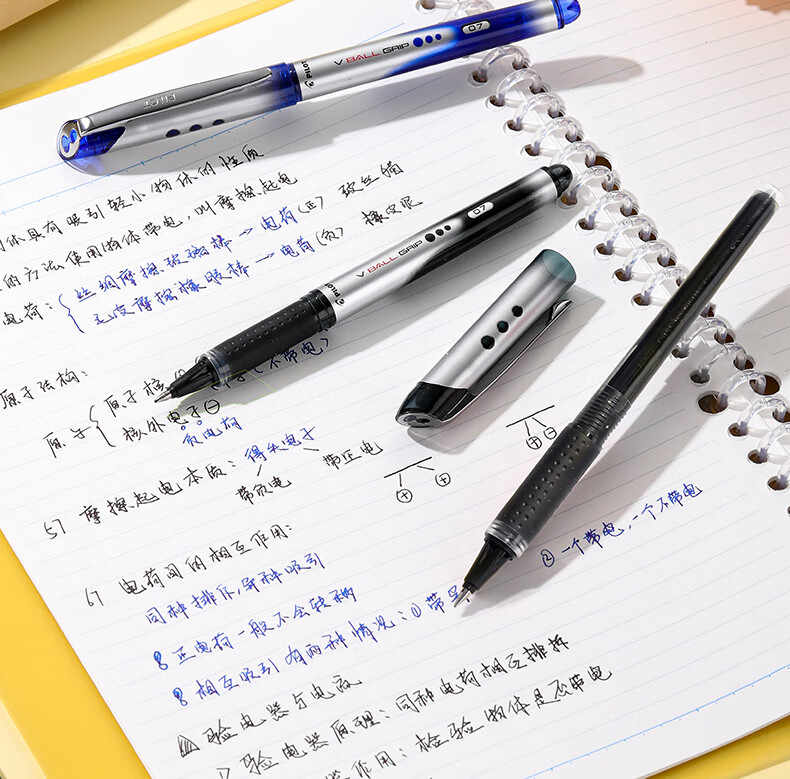 PILOT V BALL GRIP 07
PILOT
体具有吸引轻小物体的性质
的方法使用物体带电,叫摩擦起电
电荷:{丝绸摩擦玻璃棒→电荷(正) 玻丝
毛皮摩擦橡胶棒→电荷(负) 橡
PILOT V BALL GRIP 07
原子结构:
原子{原子核
(不带电)
核外电子⊖
负电荷
57 摩擦起电本质:得失电子
带负电 带正电
⊕ ⊕
⊕ ⊖
67 电荷间的相互作用:
同种排斥,异种吸引
8 正电荷一般不会转移
8 相互吸引有两种情况:① 带异
② 一个带电,一个不带电
验电器与电流
验电器原理:同种电荷相互排斥
作用:检验物体是否带电